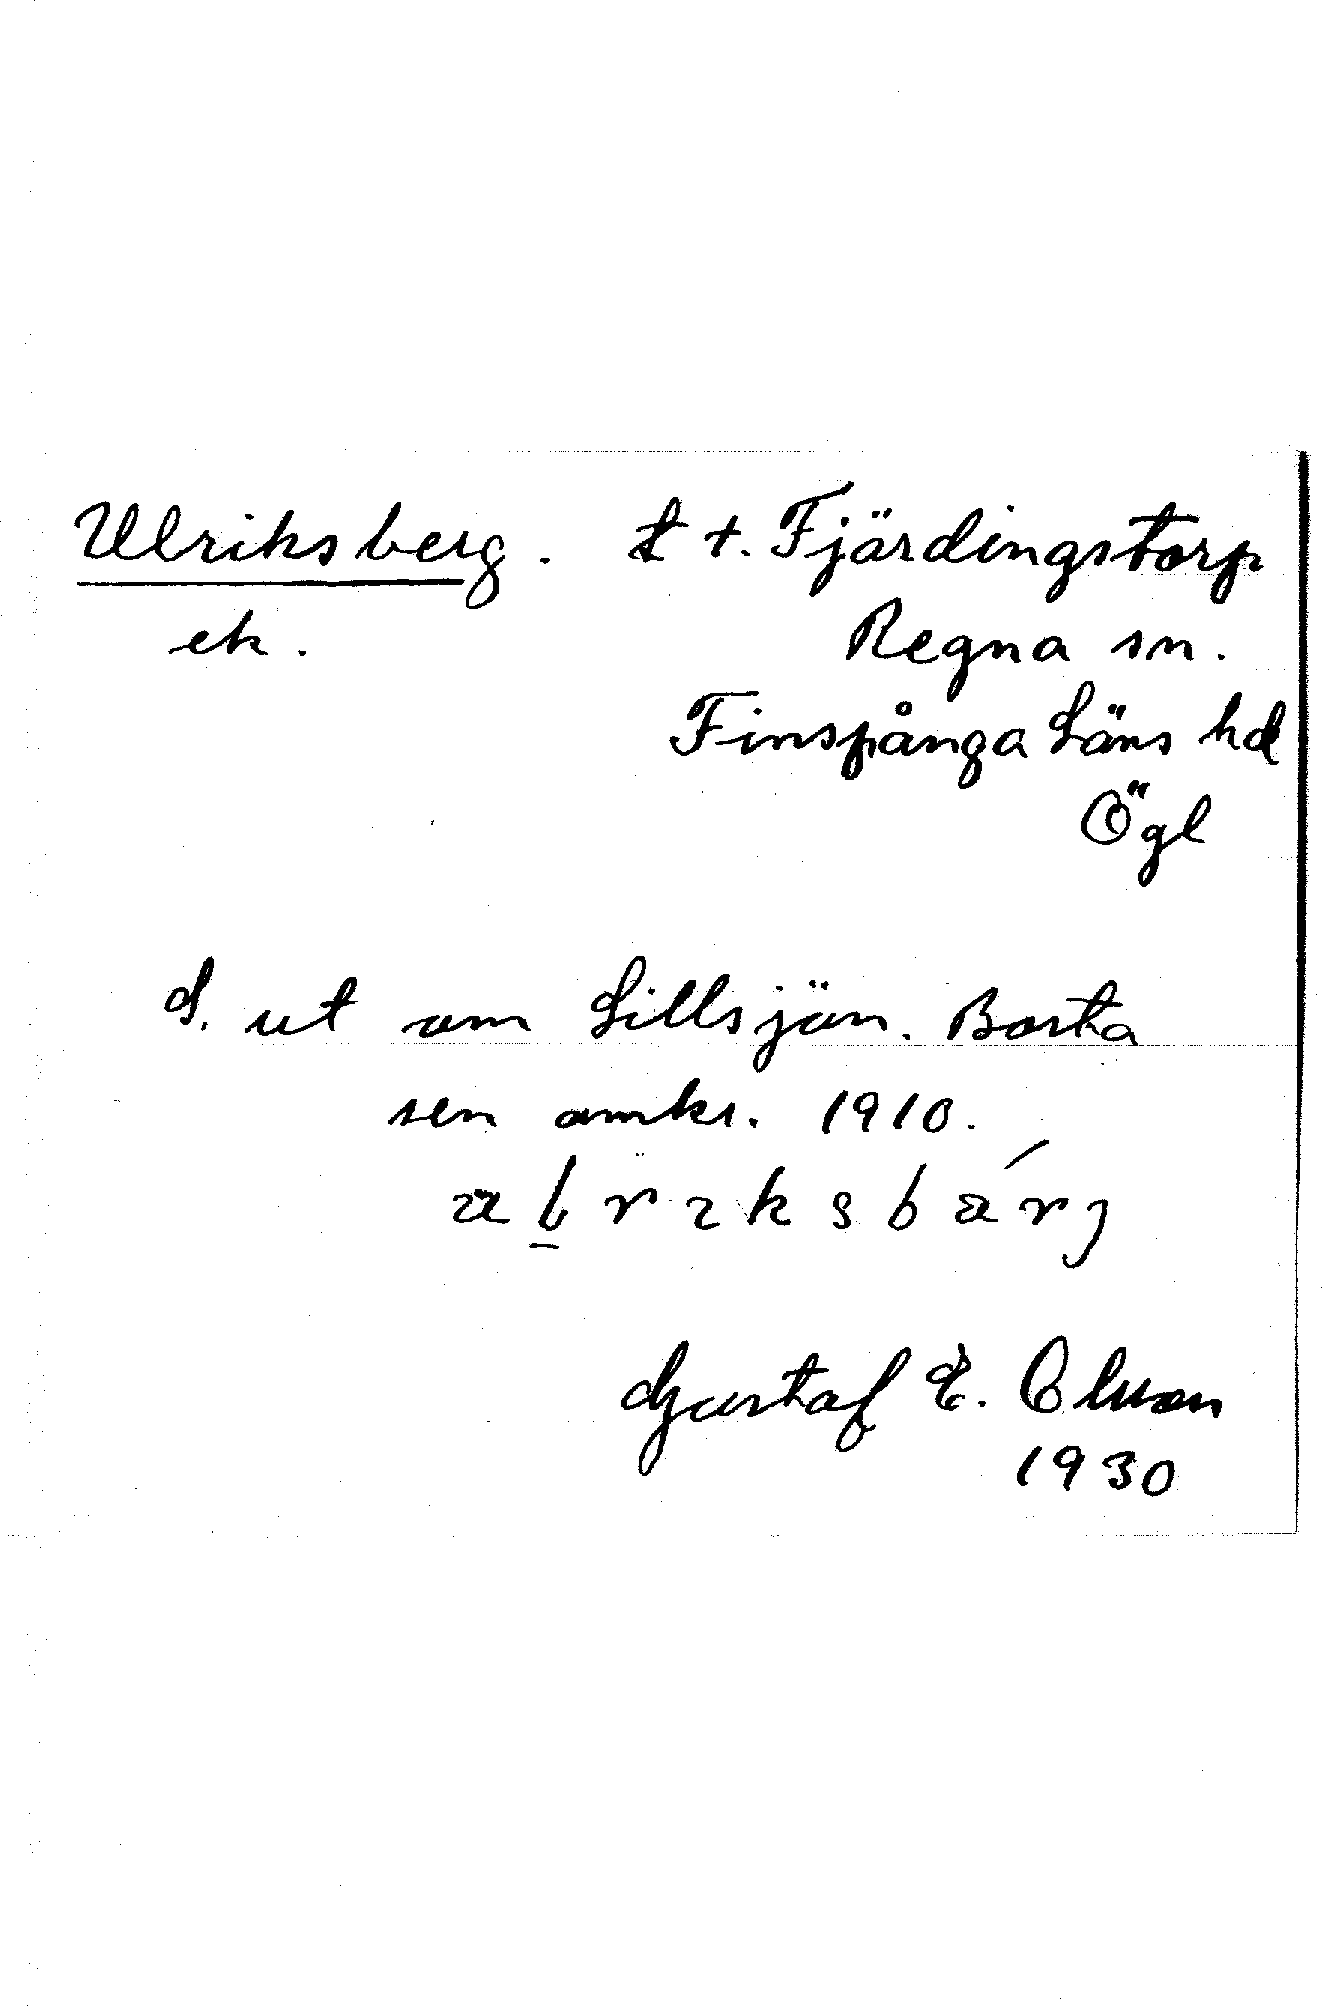 Ulriksberg. t t. Fjärdingstorp
ek. Regna sn.
Finspånga Läns hd
Ögl
S. ut om Lillsjön. Borta
sen omkr. 1910.
Gustaf E. Olsson
1930